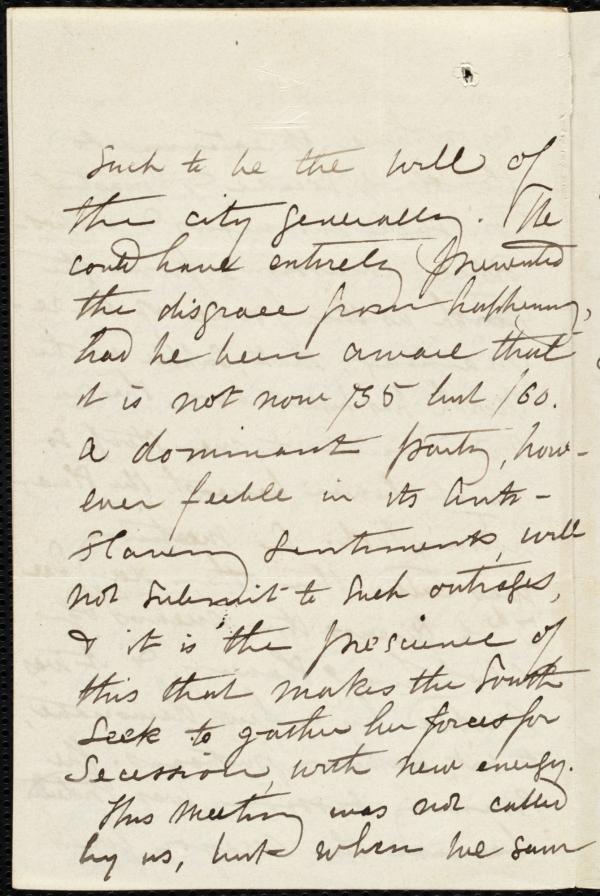 such to be the will of
the city generally. He
could have entirely prevented
the disgrace from happening,
had he been aware that
it is not now /35 but /60.
A dominant party, how-
ever feeble in its Anti-
Slavery sentiments, will
not submit to such outrages,
& it is the prescience of
this that makes the South
seek to gather her forces for
Secession, with new energy.
This meeting was not called
by us, but when we saw